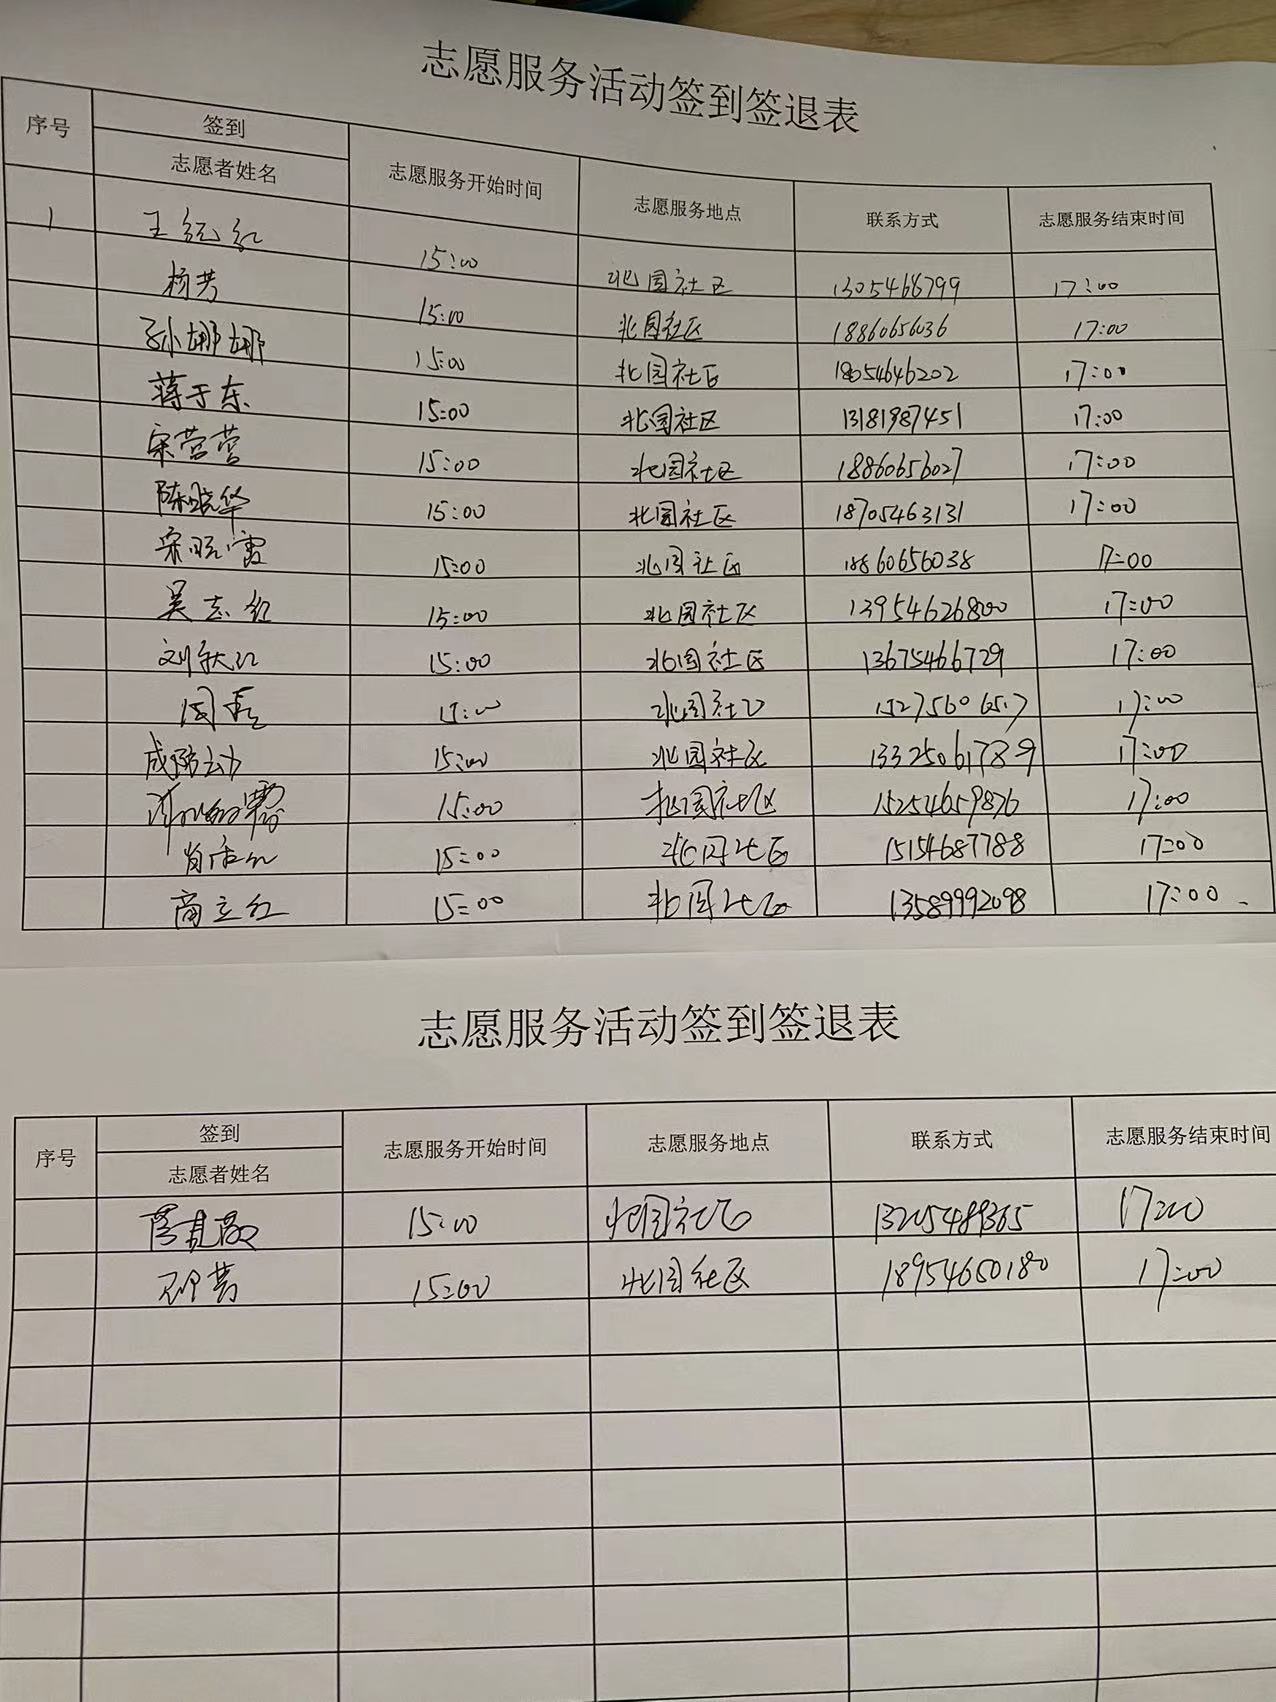 志愿服务活动签到签退表
序号 签到 志愿服务开始时间 志愿服务地点 联系方式 志愿服务结束时间
志愿者姓名
1 王红 15:00 北国社区 1305468799 17:00
杨芳 15:00 北国社区 18860656036 17:00
孙娜娜 15:00 北国社区 18054646202 17:00
蒋于东 15:00 北国社区 13181987451 17:00
宋营营 15:00 北国社区 18860656027 17:00
陈晓华 15:00 北国社区 18705463131 17:00
宋晓雷 15:00 北国社区 18860656038 17:00
吴志红 15:00 北国社区 13954626800 17:00
刘秋江 15:00 北国社区 13675466729 17:00
周 15:00 北国社区 15275606517 17:00
成 15:00 北国社区 13325061789 17:00
15:00 北国社区 15254659876 17:00
肖 15:00 北国社区 15154687788 17:00
商立红 15:00 北国社区 13589992098 17:00
志愿服务活动签到签退表
序号 签到 志愿服务开始时间 志愿服务地点 联系方式 志愿服务结束时间
志愿者姓名
15:00 北国社区 13205489365 17:00
15:00 北国社区 18954650180 17:00